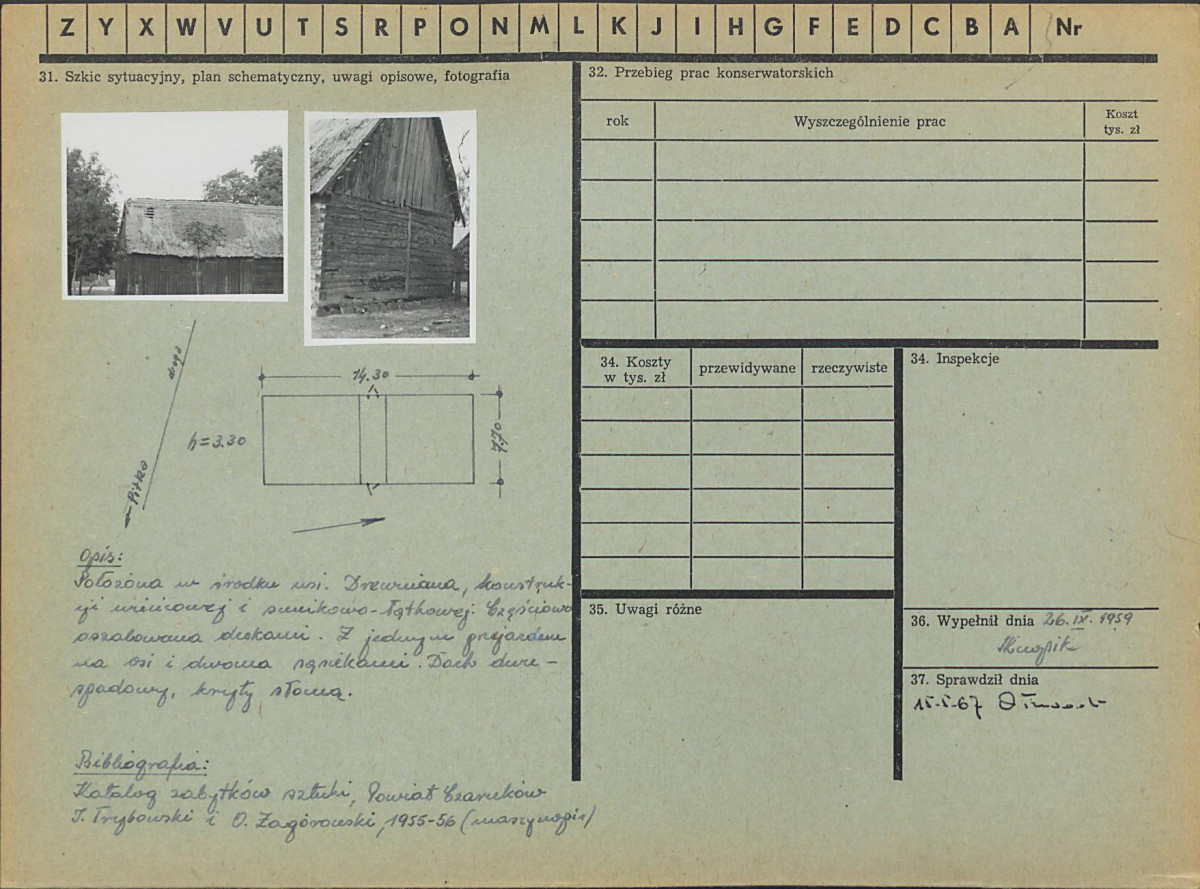 Z Y X W V U T S R P O N M L K J I H G F E D C B A Nr
31. Szkic sytuacyjny, plan schematyczny, uwagi opisowe, fotografia
droga
14.30
h=3.30
7.70
Piłka
Opis:
Położona w środku wsi. Drewniana, konstruk-
cji wieńcowej i sumikowo-łątkowej. Częściowo
oszalowana deskami. Z jednym przejazdem
na osi i dwoma sąsiekami. Dach dwu-
spadowy, kryty słomą.
Bibliografia:
Katalog zabytków sztuki, Powiat Czarnków
T. Trybowski i O. Zagórowski, 1955-56 (maszynopis)
32. Przebieg prac konserwatorskich
rok
Wyszczególnienie prac
Koszt
tys. zł
34. Koszty
w tys. zł
przewidywane
rzeczywiste
34. Inspekcje
35. Uwagi różne
36. Wypełnił dnia 26.IX.1959
37. Sprawdził dnia